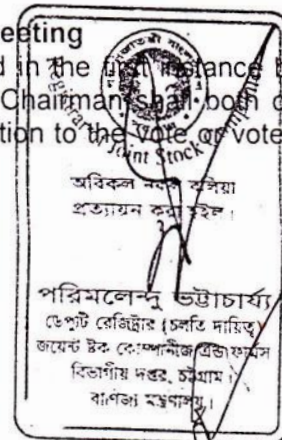 eeting
d in the first instance b
Chairman shall both o
tion to the vote or vote
Registrar Joint Stock
অবিকল নকল বলিয়া
প্রত্যায়ন করা হইল।
পরিমলেন্দু ভট্টাচার্য্য
ডেপুটি রেজিষ্ট্রার (চলতি দায়িত্ব)
জয়েন্ট ষ্টক কোম্পানীজ এন্ড ফার্মস
বিভাগীয় দপ্তর, চট্টগ্রাম।
বাণিজ্য মন্ত্রণালয়।